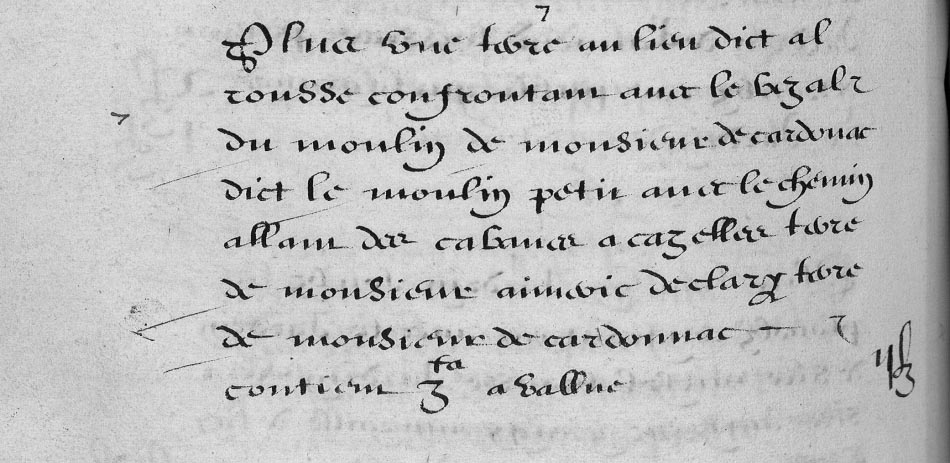 7
Plus une terre au lieu dict al
rousse confrontant avec le bezal
du moulin de monsieur de cardonac
dict le moulin petit avec le chemin
allant des cabanes a cazelles terre
de monsieur aimeric declary terre
de monsieur de cardonnac
contient 3 fa a vallue